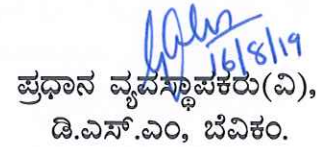 16/8/19
ಪ್ರಧಾನ ವ್ಯವಸ್ಥಾಪಕರು(ವಿ),
ಡಿ.ಎಸ್.ಎಂ, ಬೆವಿಕಂ.